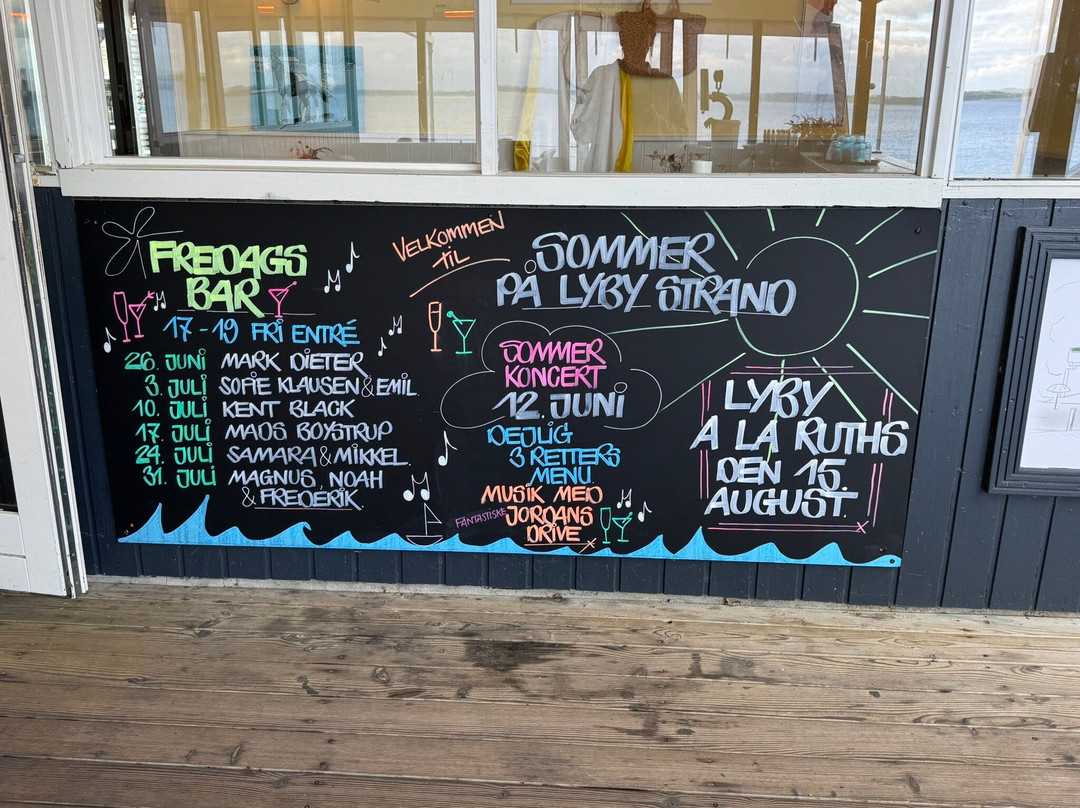 FREDAGS
BAR
17-19 FRI ENTRÉ
26. JUNI MARK DIETER
3. JULI SOFIE KLAUSEN & EMIL
10. JULI KENT BLACK
17. JULI MADS BOYSTRUP
24. JULI SAMARA & MIKKEL
31. JULI MAGNUS, NOAH
& FREDERIK
VELKOMMEN
TIL
SOMMER
PÅ LYBY STRAND
SOMMER
KONCERT
12. JUNI
DEJLIG
3 RETTERS
MENU
MUSIK MED
FANTASTISKE JORDANS
DRIVE
LYBY
A LA RUTHS
DEN 15.
AUGUST.